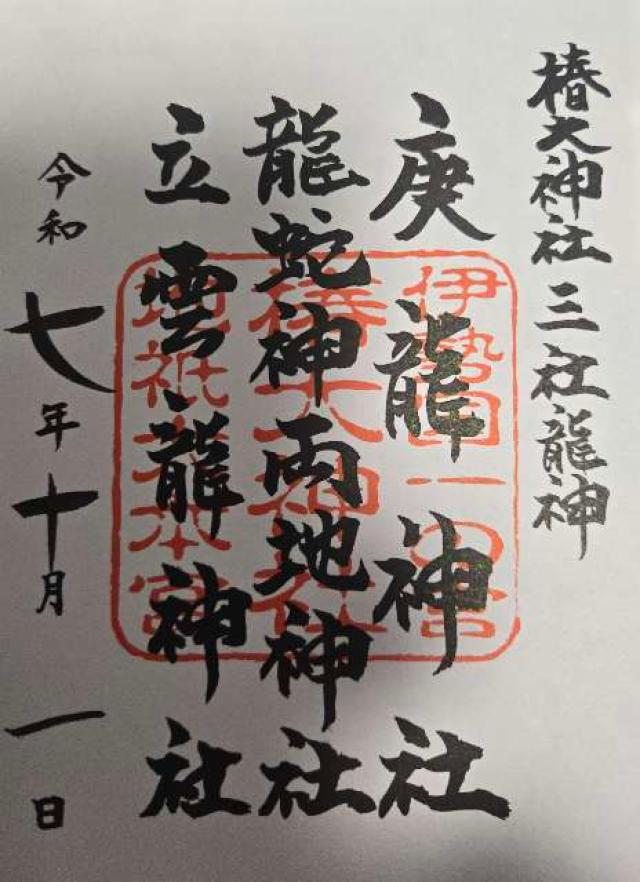 椿大神社三社龍神
庚龍神社
龍蛇神両地神社
立雲龍神社
令和七年十月一日
伊勢国一の宮
椿大神社
地祇大本宮